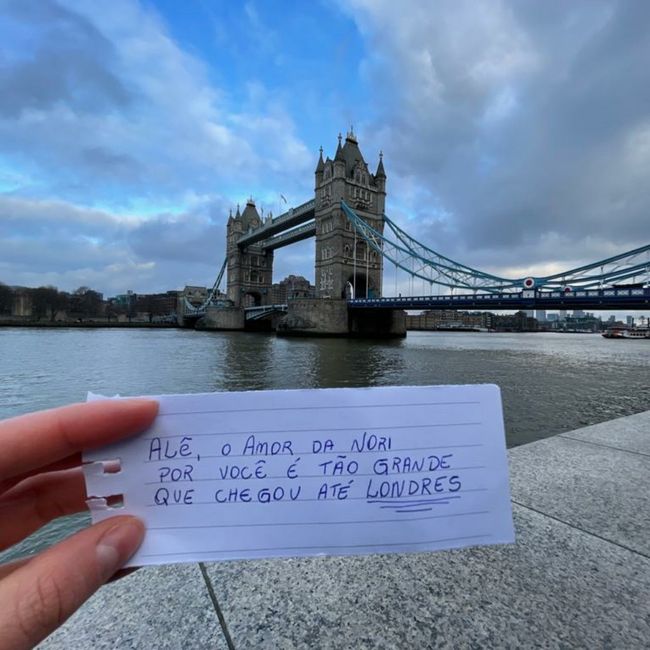 ALÊ, O AMOR DA NORI
POR VOCÊ É TÃO GRANDE
QUE CHEGOU ATÉ LONDRES